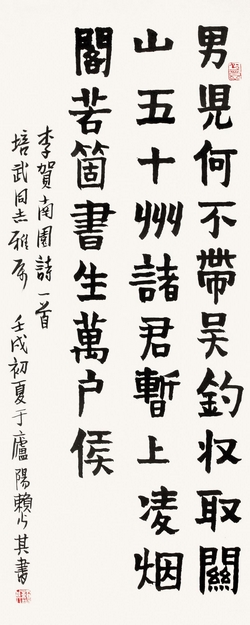 男児何不帶吳鈎収取關
山五十州諸君暫上凌烟
閣若箇書生萬户侯
李賀南園詩一首
培武同志雅屬 壬戌初夏于廬陽賴少其書